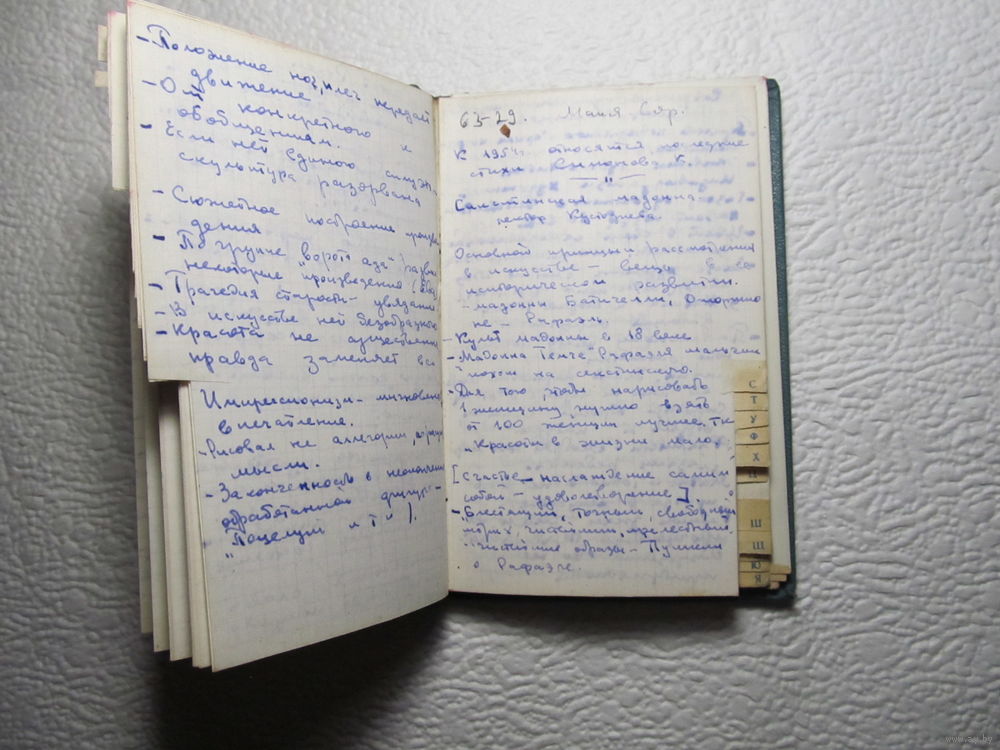 - Положение ног, плеч передаёт
движение
- От конкретного к
обобщениям.
- Если нет единого силуэта
скульптура разорвана
- Сюжетное построение
дения
- По группе "ворота ада"
некоторые произведения
- Трагедия старости - увядание
- В искусстве нет безобразного
- Красота не существенна
правда заменяет всё
Импрессионизм - мгновение
впечатление.
- Рисовал не аллегории, а
мысли.
- Законченность в неоконченной
обработанной фигуре -
"Поцелуй" и т.п.).
63-29. Майя Сяр.
К 1954 г. относятся последние
стихи
Сикстинская мадонна
лектор Кустодиева
Основной принцип рассмотрения
в искусстве - вещь в её
историческом развитии.
мадонны Батичелли,
не - Рафаэль.
- Культ мадонны в 18 веке
- "Мадонна Темпе" Рафаэля мальчик
похож на сикстинского.
- Для того, чтобы нарисовать
1 женщину, нужно взять
от 100 женщин лучшее, т.к.
"Красоты в жизни мало."
[счастье - наслаждение самим
собой - удовлетворение].
- "Блестящий, точный, свободный
штрих, чистейшие, прелестные
чистейшие образы - Пушкин
о Рафаэле.
С
Т
У
Ф
Х
Ц
Ш
Щ
Ю
Я
www.ay.by